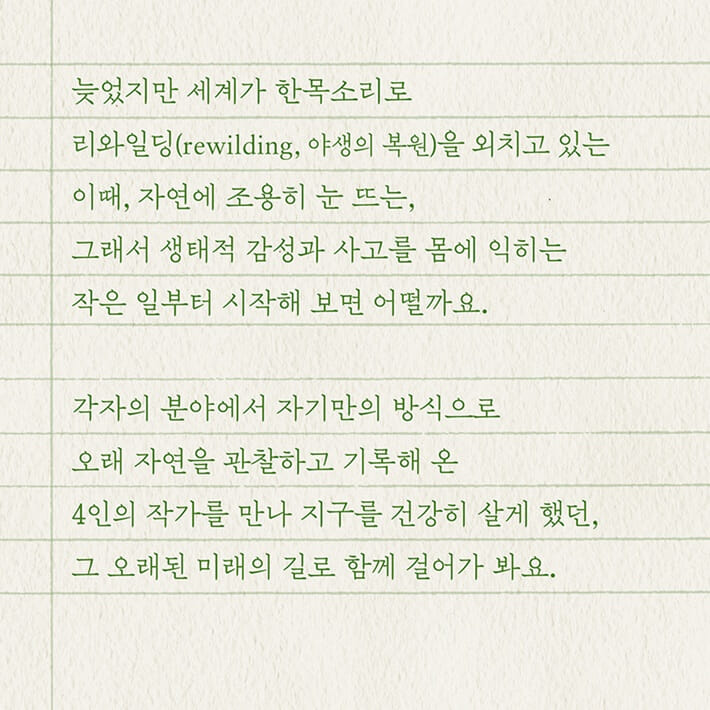 늦었지만 세계가 한목소리로
리와일딩(rewilding, 야생의 복원)을 외치고 있는
이때, 자연에 조용히 눈 뜨는,
그래서 생태적 감성과 사고를 몸에 익히는
작은 일부터 시작해 보면 어떨까요.
각자의 분야에서 자기만의 방식으로
오래 자연을 관찰하고 기록해 온
4인의 작가를 만나 지구를 건강히 살게 했던,
그 오래된 미래의 길로 함께 걸어가 봐요.